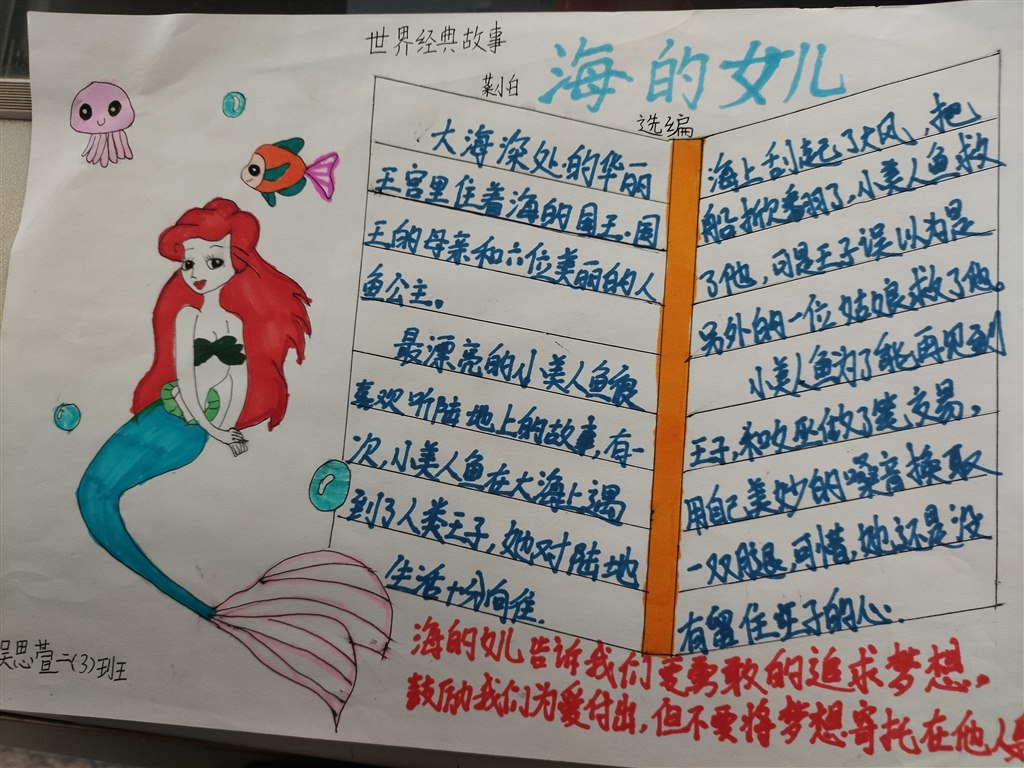 世界经典故事
海的女儿
菜小白
选编
大海深处的华丽
王宫里住着海的国王.国
王的母亲和六位美丽的人
鱼公主。
最漂亮的小美人鱼很
喜欢听陆地上的故事,有一
次,小美人鱼在大海上遇
到了人类王子,她对陆地
生活十分向往.
海上刮起了大风,把
船掀翻了,小美人鱼救
了他,可是王子误以为是
另外的一位姑娘救了他。
小美人鱼为了能再见到
王子,和女巫做了笔交易,
用自己美妙的嗓音换取
一双腿,可惜,她还是没
有留住王子的心.
海的女儿告诉我们要勇敢的追求梦想,
鼓励我们为爱付出,但不要将梦想寄托在他人
吴思萱二(3)班